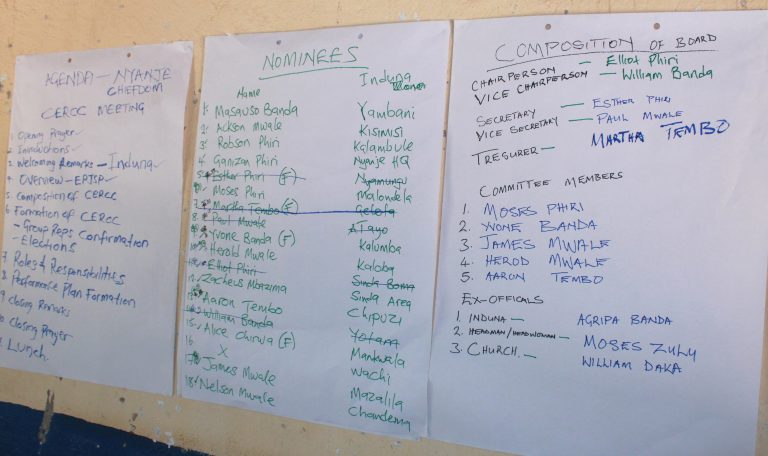 AGENDA - NYANJE
CHIEFDOM
CERCC MEETING
1 Opening Prayer
2. Introductions
3. Welcoming Remarks - Induna
4 Overview - EPJSP
5. Composition of CERCC
6 Formation of CERCC
- Group Reps Confirmation
- Elections
7. Roles & Responsibilities
8. Performance Plan Formation
9 Closing Remarks
10. Closing Prayer
Lunch
NOMINEES
Name Induna
1. Masauso Banda Yambani
2. Ackson Mwale Kisimisi
3. Robson Phiri Kalambule
4. Ganizan Phiri Nyanje HQ
5. Esther Phiri (F) Nyamungu
Moses Phiri Malondela
7. Martha Tembo (F) Gelota
8. Paul Mwale
Yvone Banda (F) Kalumba
Herold Mwale Kaloba
Elliot Phiri Sinda Boma
12. Zacheus Mbazima Sinda Area
Aaron Tembo Chipuzi
William Banda Yotam
15. Alice Chirwa (F) Mankwala
16 X
17 James Mwale Wachi
18. Nelson Mwale Mazalila
Chandema
COMPOSITION OF BOARD
CHAIRPERSON - Elliot Phiri
VICE CHAIRPERSON - William Banda
SECRETARY - ESTHER PHIRI
VICE SECRETARY - PAUL MWALE
TRESURER - MARTHA TEMBO
COMMITTEE MEMBERS
1. MOSES PHIRI
2. YVONE BANDA
3. JAMES MWALE
4. HEROD MWALE
5. AARON TEMBO
EX-OFFICALS
1. INDUNA - AGRIPA BANDA
2. HEADMAN/HEADWOMAN - MOSES ZULU
3. CHURCH. - WILLIAM DAKA